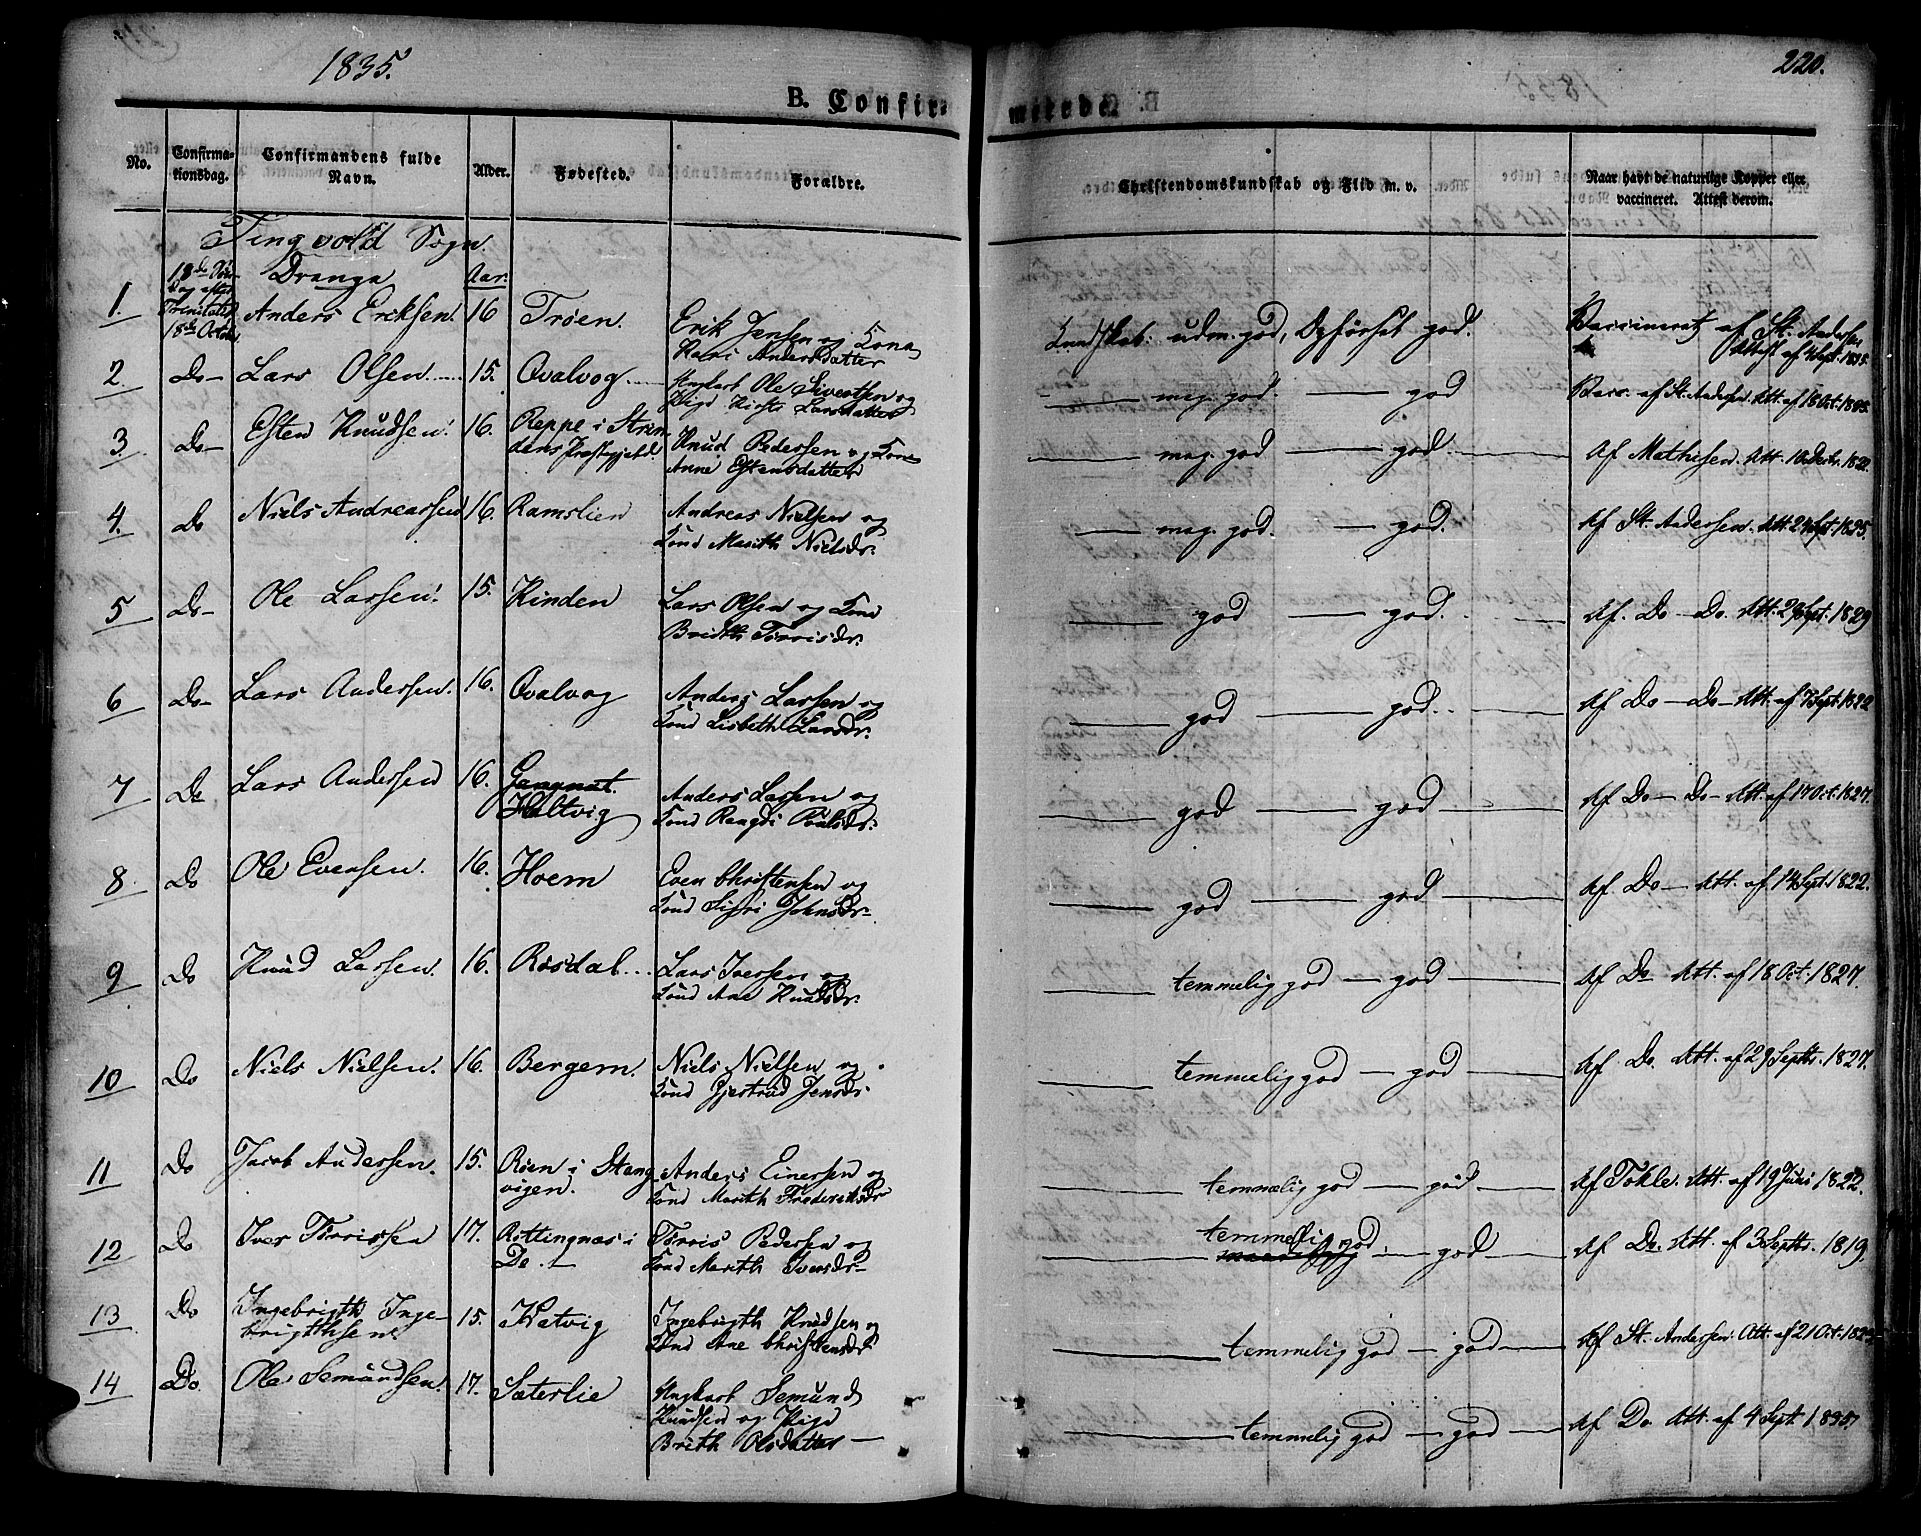 1835.
220.
B. Confir-
merede.
No.
Confirma-
tionsdag.
Confirmandens fulde
Navn.
Alder.
Fødested.
Forældre.
Christendomskundskab og Flid m. v.
Naar havt de naturlige Kopper eller
vaccineret. Attest derom.
Tingvold Sogn.
Drenge Aar:
1. 18de Søn-
dag efter
Trinitatis
18de Octob. Anders Ericksen. 16 Trøen. Erik Jensen og Kona
Kari Andersdatter Kundskab: udm. god, Opførsel god. Vaccineret af St. Andersen
Attest af 4 Sept. 1835.
2. Do- Lars Olsen 15. Qvalvog Ungkarl Ole Sivertsen og
Pige Kirsti Larsdatter meg. god. - god Vacc. af St. Andersen Att. af 18 Oct. 1835.
3. Do- Esten Knudsen. 16. Reppe i Strin-
dens Præstegjeld. Knud Pedersen og Kone
Anne Estensdatter meg. god - god. Af Mathisen. Att. 10 Decbr. 1822
4. Do Niels Andreassen 16. Ramslien Andreas Nielsen og
Kone Marith Nielsdr. meg. god. - god. Af St. Andersen. Att. 24 Sept. 1835.
5 Do- Ole Larsen. 15. Kinden Lars Olsen og Kone
Brith Torrisdr. god - god. Af. Do - Do. Att. 29 Sept. 1829
6 Do- Lars Andersen. 16. Qvalvog Anders Larsen og
Kone Lisbeth Larsdr. god - god. Af Do - Do - Att. af 7 Sept. 1822
7 Do Lars Andersen 16. Gangnat.
Holtvig Anders Larsen og
Kone Raagri Poulsdr. god - god Af Do - Do - Att. af 17 Oct. 1827.
8 Do Ole Evensen. 16. Hoem Even Christensen og
Kone Sigri Johnsdr. god - god Af Do - Att. af 14 Sept. 1822.
9 Do Knud Larsen. 16. Rosdal Lars Iversen og
Kone Ane Knudsdr. temmelig god - god Af Do Att. af 18 Oct. 1827.
10 Do Niels Nielsen. 16. Bergem. Niels Nielsen og
Kone Gjertrud Jensdr. temmelig god - god Af Do. Att. af 29 Septr. 1827.
11 Do Jacob Andersen. 15. Røen i Stang-
vigen. Anders Einersen og
Kone Marith Frederiksdr temmelig god - god Af Tokle. Att. af 19 Juni 1822.
12 Do Iver Torrissen 17. Rottingnæs i
Do. Torris Pedersen og
Kone Marith Iversdr temmelig god - god Af Do. Att. af 3 Septr. 1819.
13 Do Ingebrigth Inge-
brigthsen 15. Kvatvig Ingebrigth Knudsen og
Kone Ane Christensdr temmelig god - god Af St. Andersen. Att. af 21 Oct.
14 Do. Ole Semundsen. 17. Sæterlie Ungkarl Semund
Knudsen og Pige
Brith Olsdatter temmelig god - god Af Do. Att. af 4 Sept. 1835